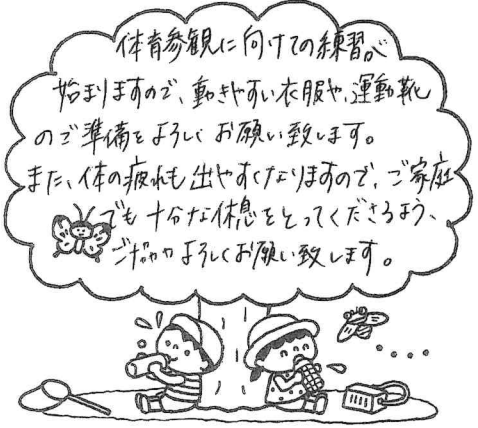 体育参観に向けての練習が
始まりますので、動きやすい衣服や、運動靴
のご準備をよろしくお願い致します。
また、体の疲れも出やすくなりますので、ご家庭
でも十分な休息をとってくださるよう、
よろしくお願い致します。